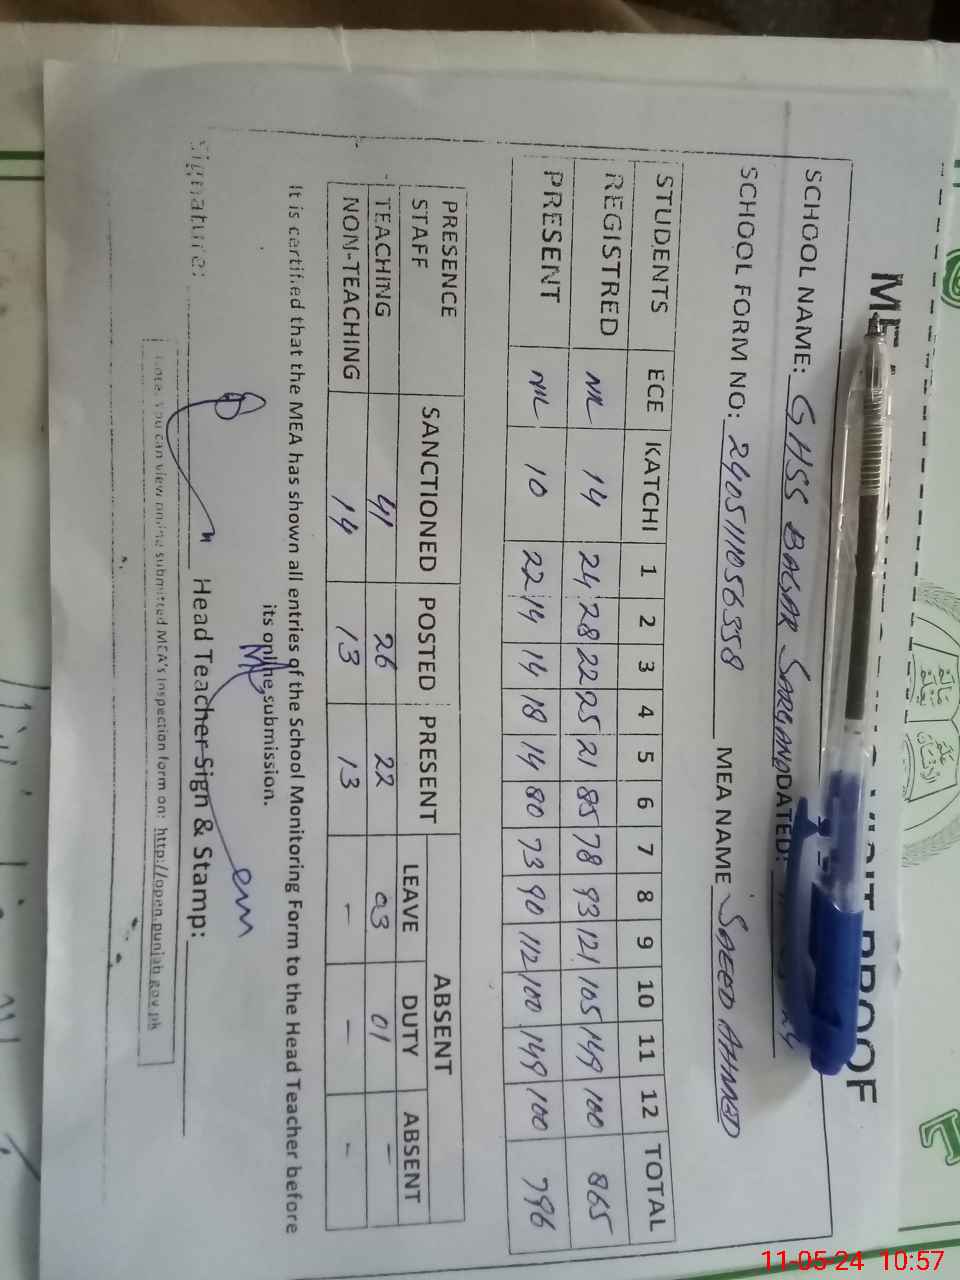 VISIT PROOF
SCHOOL NAME: GHSS BAGAR SARGANA DATED:
SCHOOL FORM NO: MEA NAME SAEED AHMED
STUDENTS ECE KATCHI 1 2 3 4 5 6 7 8 9 10 11 12 TOTAL
REGISTRED NIL 14 24 28 22 25 21 85 78 93 121 105 149 100 865
PRESENT NIL 10 22 14 14 18 14 80 73 90 112 100 149 100 796
PRESENCE STAFF SANCTIONED POSTED PRESENT ABSENT
LEAVE DUTY ABSENT
TEACHING 41 26 22 03 01 -
NON-TEACHING 14 13 13 - - -
It is certified that the MEA has shown all entries of the School Monitoring Form to the Head Teacher before
its online submission.
Signature: Head Teacher Sign & Stamp:
Note: You can view online submitted MEA's inspection form on: http://open.punjab.gov.pk
11-05-24 10:57